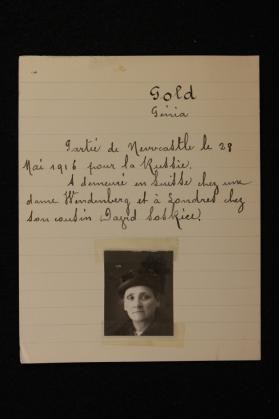 Gold
Génia
Partie de Newcastle le 28
Mai 1916 pour la Russie.
A demeuré en Suisse chez une
dame Wendenberg et à Londres chez
son cousin David Soskice.